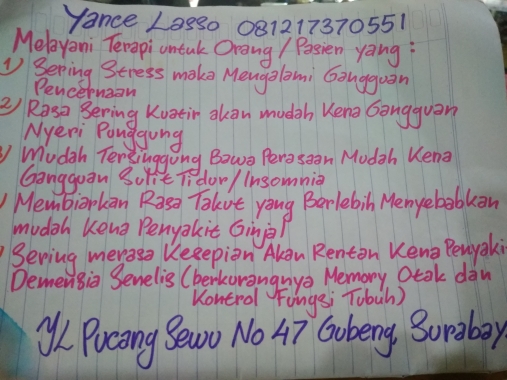 Yance Lasso 081217370551
Melayani Terapi untuk Orang/Pasien yang :
1) Sering Stress maka Mengalami Gangguan
Pencernaan
2) Rasa Sering Kuatir akan mudah Kena Gangguan
Nyeri Punggung
Mudah Tersinggung Bawa Perasaan Mudah Kena
Gangguan Sulit Tidur/Insomnia
Membiarkan Rasa Takut yang Berlebih Menyebabkan
mudah Kena Penyakit Ginjal
Sering merasa Kesepian Akan Rentan Kena Penyaki
Demensia Senelis (berkurangnya Memory Otak dan
Kontrol Fungsi Tubuh)
JL Pucang Sewu No 47 Gubeng, Surabay